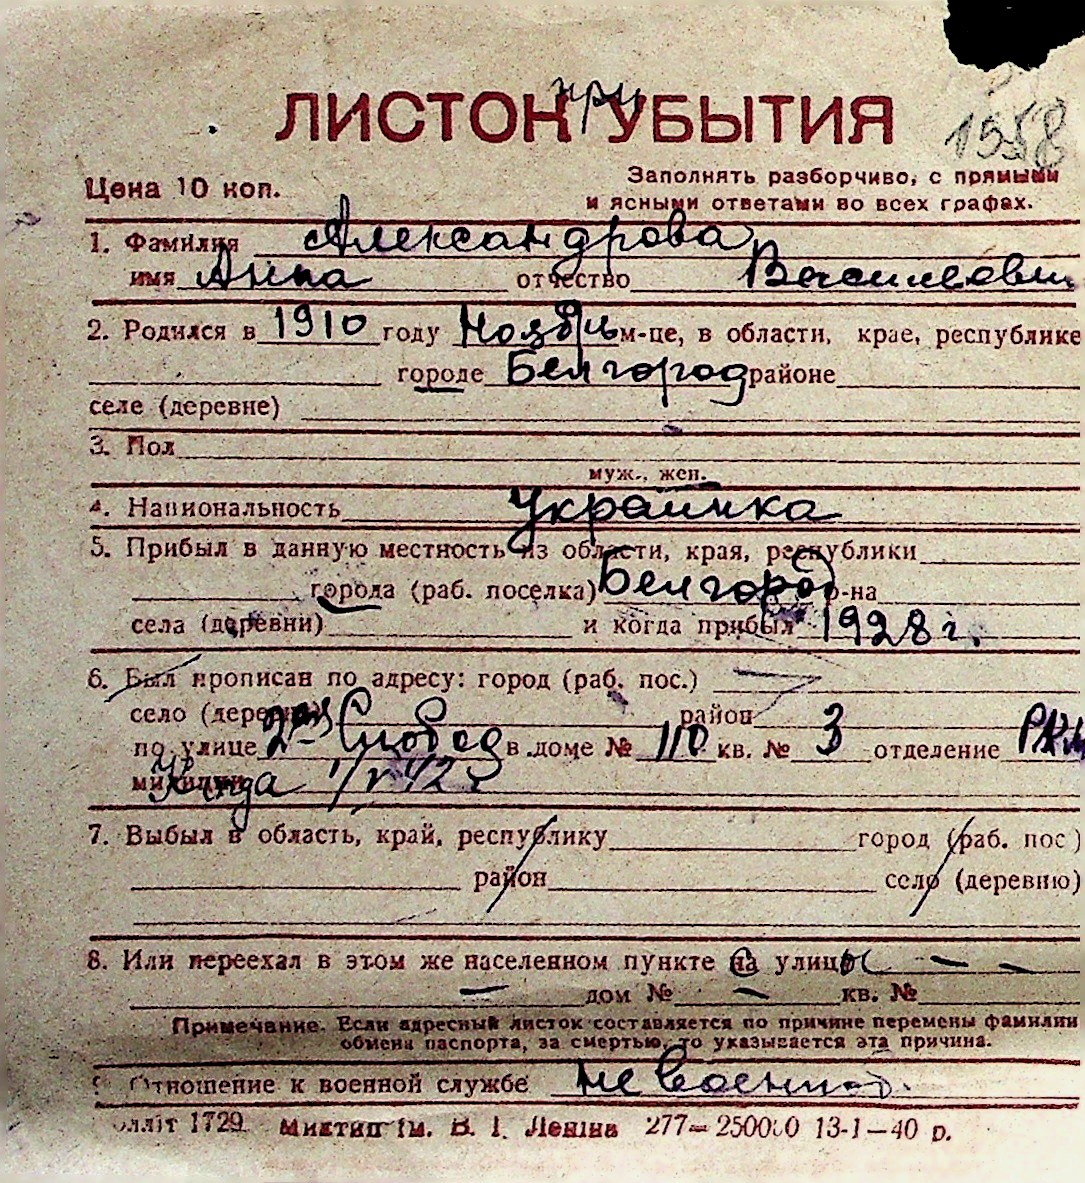 ЛИСТОК при УБЫТИЯ
1558
Цена 10 коп.
Заполнять разборчиво, с прямыми
и ясными ответами во всех графах.
1. Фамилия Александрова
имя Анна отчество Васильевн
2. Родился в 1910 году Ноябрь м-це, в области, крае, республике
городе Белгород районе
селе (деревне)
3. Пол
муж., жен.
4. Национальность Украинка
5. Прибыл в данную местность из области, края, республики
города (раб. поселка) Белгород р-на
села (деревни) и когда прибыл 1928 г.
6. Был прописан по адресу: город (раб. пос.)
село (деревня) район
по улице 2ая Слобод в доме № 110 кв. № 3 отделение РКМ
милиции
7. Выбыл в область, край, республику город (раб. пос.)
район село (деревню)
8. Или переехал в этом же населенном пункте на улицы — —
— дом № — кв. №
Примечание. Если адресный листок составляется по причине перемены фамилии
обмена паспорта, за смертью, то указывается эта причина.
9. Отношение к военной службе не военнооб.
літ 1729. Миктип ім. В. І. Леніна 277—250000 13-1—40 р.